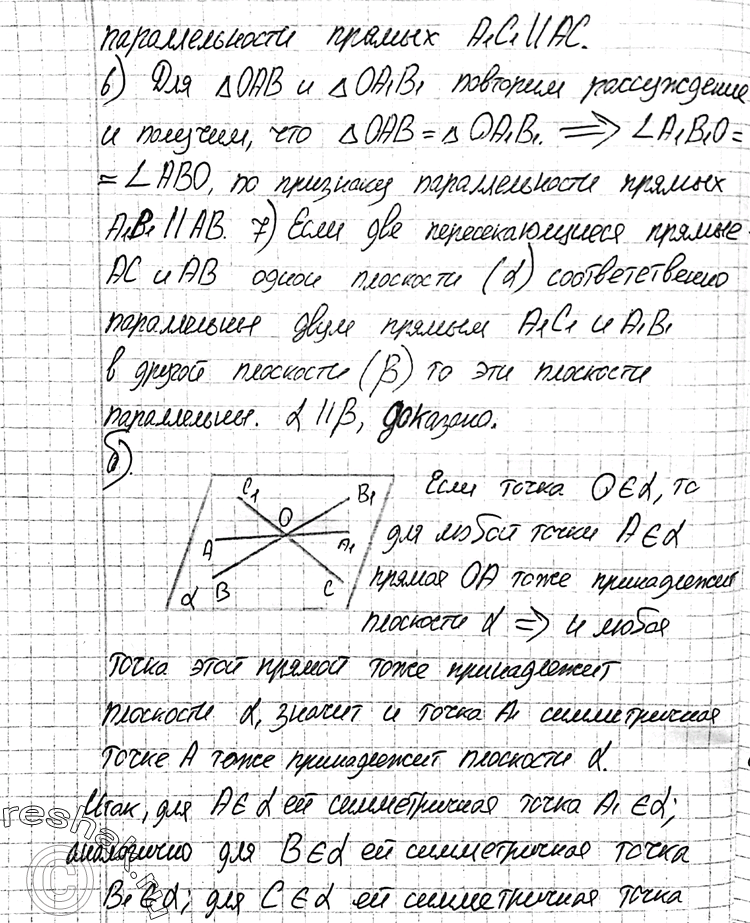 параллельности прямых A₁C₁ || AC.
6) Для △OAB и △OA₁B₁ повторим рассуждение
и получим, что △OAB = △OA₁B₁. ⟹ ∠A₁B₁O =
= ∠ABO, по признаку параллельности прямых
A₁B₁ || AB. 7) Если две пересекающиеся прямые
AC и AB одной плоскости (α) соответственно
параллельны двум прямым A₁C₁ и A₁B₁
в другой плоскости (β) то эти плоскости
параллельны. α || β, доказано.
б).
C₁ B₁
O
A A₁
α B C
Если точка O ∈ α, то
для любой точки A ∈ α
прямая OA тоже принадлежит
плоскости α ⟹ и любая
точка этой прямой тоже принадлежит
плоскости α, значит и точка A₁ симметричная
точке A тоже принадлежит плоскости α.
Итак, для A ∈ α ей симметричная точка A₁ ∈ α;
аналогично для B ∈ α ей симметричная точка
B₁ ∈ α; для C ∈ α ей симметричная точка
reshak.ru
©